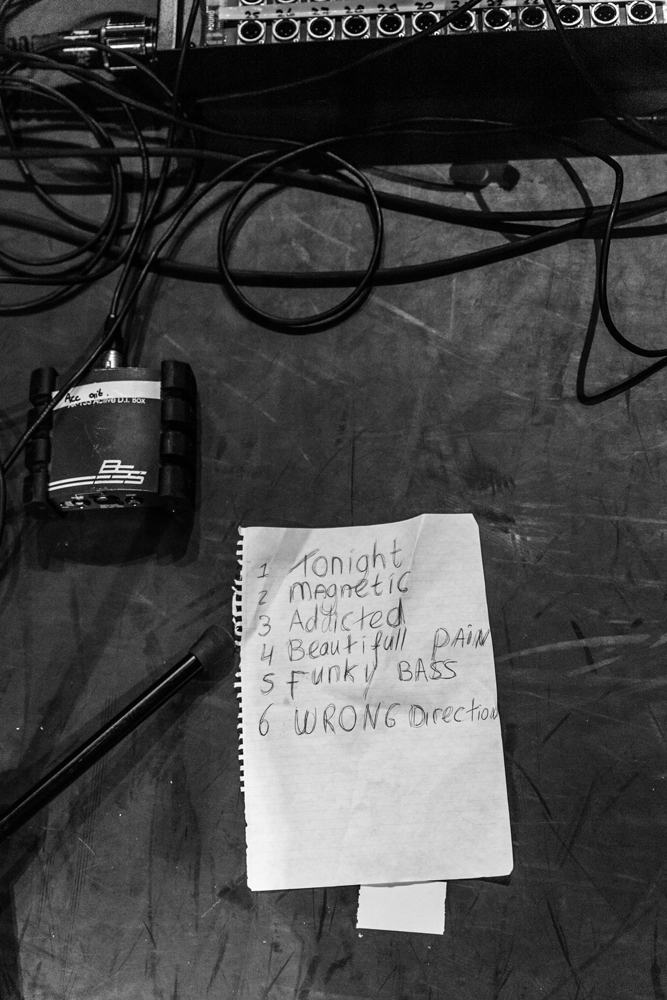 Acc git.
Active D.I. BOX
BSS
1 Tonight
2 MAgnetic
3 Addicted
4 Beautifull PAiN
5 Funky BASS
6 WRONG Direction